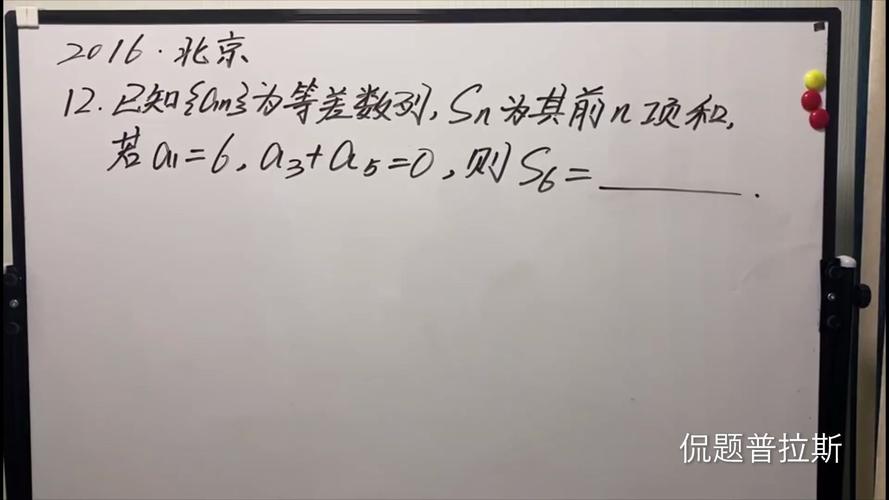 2016·北京
12.已知{an}为等差数列,Sn为其前n项和,
若a1=6,a3+a5=0,则S6=______.
侃题普拉斯